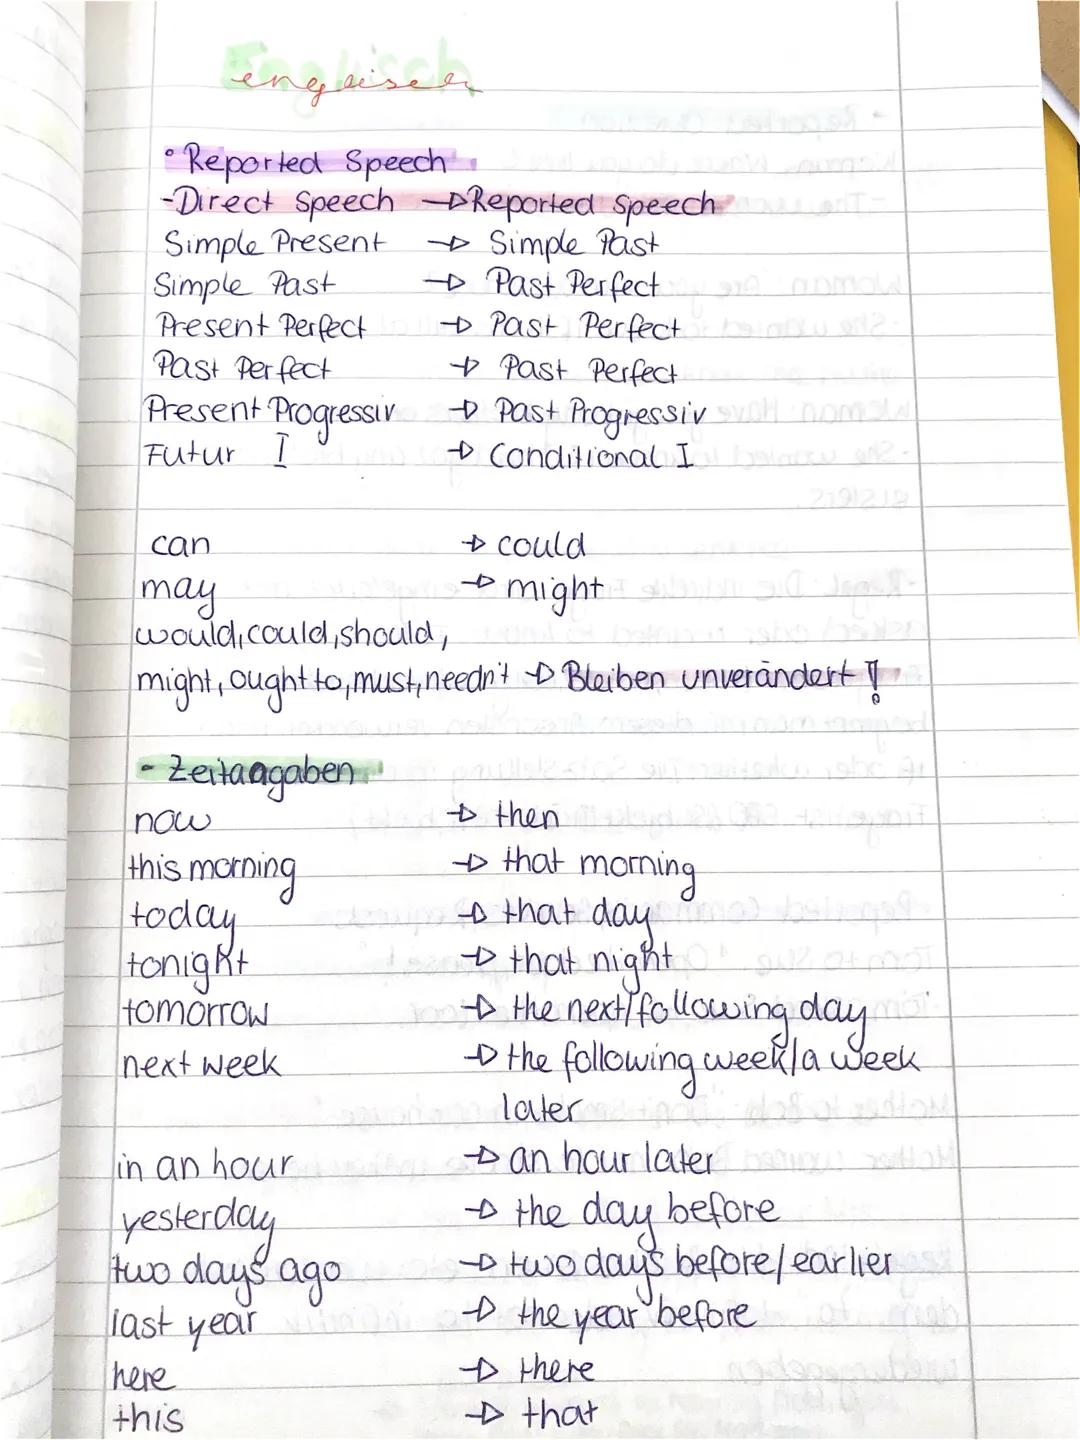 Englisch
englisch
° Reported Speech
-Direct Speech → Reported Speech
Simple Present → Simple Past
Simple Past → Past Perfect
Present Perfect → Past Perfect
Past Perfect → Past Perfect
Present Progressiv → Past Progressiv
Futur I → Conditional I
can → could
may → might
would, could, should,
might, ought to, must, needn't → Bleiben unverändert !
- Zeitangaben
now → then
this morning → that morning
today → that day
tonight → that night
tomorrow → the next/following day
next week → the following week/a week
later
in an hour → an hour later
yesterday → the day before
two days ago → two days before/earlier
last year → the year before
here → there
this → that